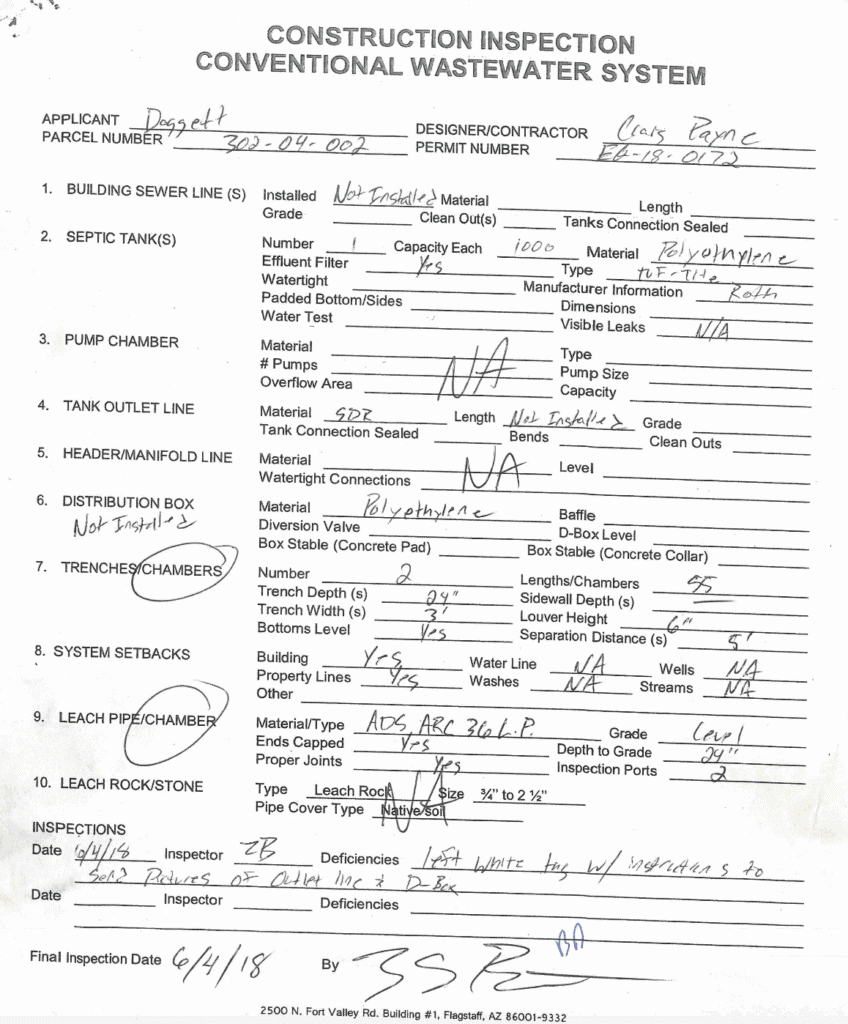 CONSTRUCTION INSPECTION
CONVENTIONAL WASTEWATER SYSTEM
APPLICANT Daggett DESIGNER/CONTRACTOR Craig Payne
PARCEL NUMBER 302-04-002 PERMIT NUMBER EG-18-0172
1. BUILDING SEWER LINE (S) Installed Not Installed Material Length
Grade Clean Out(s) Tanks Connection Sealed
2. SEPTIC TANK(S) Number 1 Capacity Each 1000 Material Polyethylene
Effluent Filter Yes Type tuf-Tite
Watertight Manufacturer Information Roth
Padded Bottom/Sides Dimensions
Water Test Visible Leaks N/A
3. PUMP CHAMBER Material NA Type
# Pumps Pump Size
Overflow Area Capacity
4. TANK OUTLET LINE Material SDR Length Not Installed Grade
Tank Connection Sealed Bends Clean Outs
5. HEADER/MANIFOLD LINE Material NA Level
Watertight Connections
6. DISTRIBUTION BOX Material Polyethylene Baffle
Not Installed Diversion Valve D-Box Level
Box Stable (Concrete Pad) Box Stable (Concrete Collar)
7. TRENCHES/CHAMBERS Number 2 Lengths/Chambers 55
Trench Depth (s) 24" Sidewall Depth (s) —
Trench Width (s) 3' Louver Height 6"
Bottoms Level Yes Separation Distance (s) 5'
8. SYSTEM SETBACKS Building Yes Water Line NA Wells NA
Property Lines Yes Washes NA Streams NA
Other
9. LEACH PIPE/CHAMBER Material/Type ADS, ARC 36 L.P. Grade Level
Ends Capped Yes Depth to Grade 24"
Proper Joints Yes Inspection Ports 2
10. LEACH ROCK/STONE Type Leach Rock NA Size ¾" to 2 ½"
Pipe Cover Type Native/soil
INSPECTIONS
Date 6/4/18 Inspector ZB Deficiencies left White tag w/ instructions to
Send Pictures of Outlet line & D-Box
Date Inspector Deficiencies
BA
Final Inspection Date 6/4/18 By
2500 N. Fort Valley Rd. Building #1, Flagstaff, AZ 86001-9332